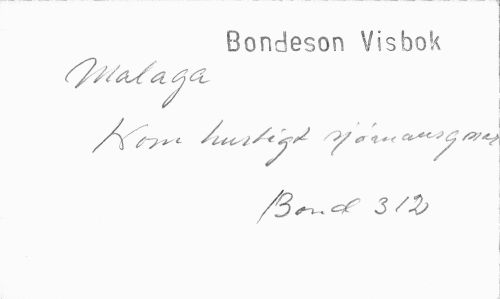 Bondeson Visbok
Malaga
Kom hurtigt sjömansgossar
Bond 312